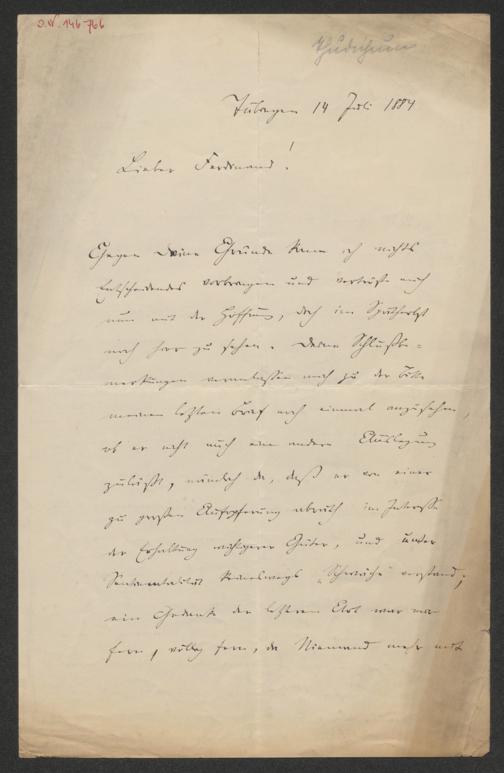 J.N. 146.766
Thudichum
Tübingen 14 Juli 1884
Lieber Ferdinand!
Gegen Deine Gründe kann ich nichts
Entscheidendes vorbringen und vertröste mich
nun mit der Hoffnung, doch im Spätherbst
noch hier zu sehen. Deine Schlußbe-
merkungen veranlassen mich zu der Bitte
meinen letzten Brief noch einmal anzusehen,
ob er nicht auch eine andere Auslegung
zuläßt, nämlich die, daß er von einer
zu großen Aufopferung abrieth im Interesse
der Erhaltung wichtigerer Güter, und unter
Sentimentalität keineswegs „Schwäche" verstand;
ein Gedanke der letzteren Art war mir
fern, völlig fern, da Niemand mehr mit